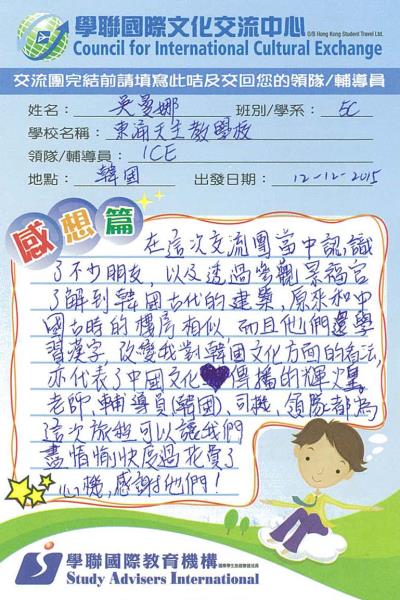 學聯國際文化交流中心
O/B Hong Kong Student Travel Ltd.
Council for International Cultural Exchange
交流團完結前請填寫此咭及交回您的領隊/輔導員
姓名： 吳曼娜 班別/學系： 5C
學校名稱： 東涌天主教學校
領隊/輔導員： ICE
地點： 韓國 出發日期： 12-12-2015
感想篇
在這次交流團當中認識
了不少朋友，以及透過參觀景福宮
了解到韓國古代的建築，原來和中
國古時的樓房相似，而且他們還學
習漢字，改變我對韓國文化方面的看法，
亦代表了中國文化傳播的輝煌。
老師、輔導員(韓國)、司機、領隊都為
這次旅程可以讓我們
盡情愉快度過花費了
心機，感謝他們！
學聯國際教育機構
Study Advisers International